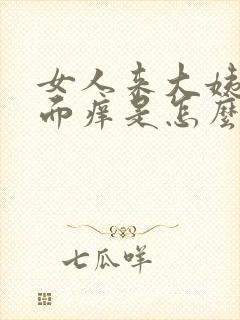 女人来大姨
而痒是怎麼
七瓜咩